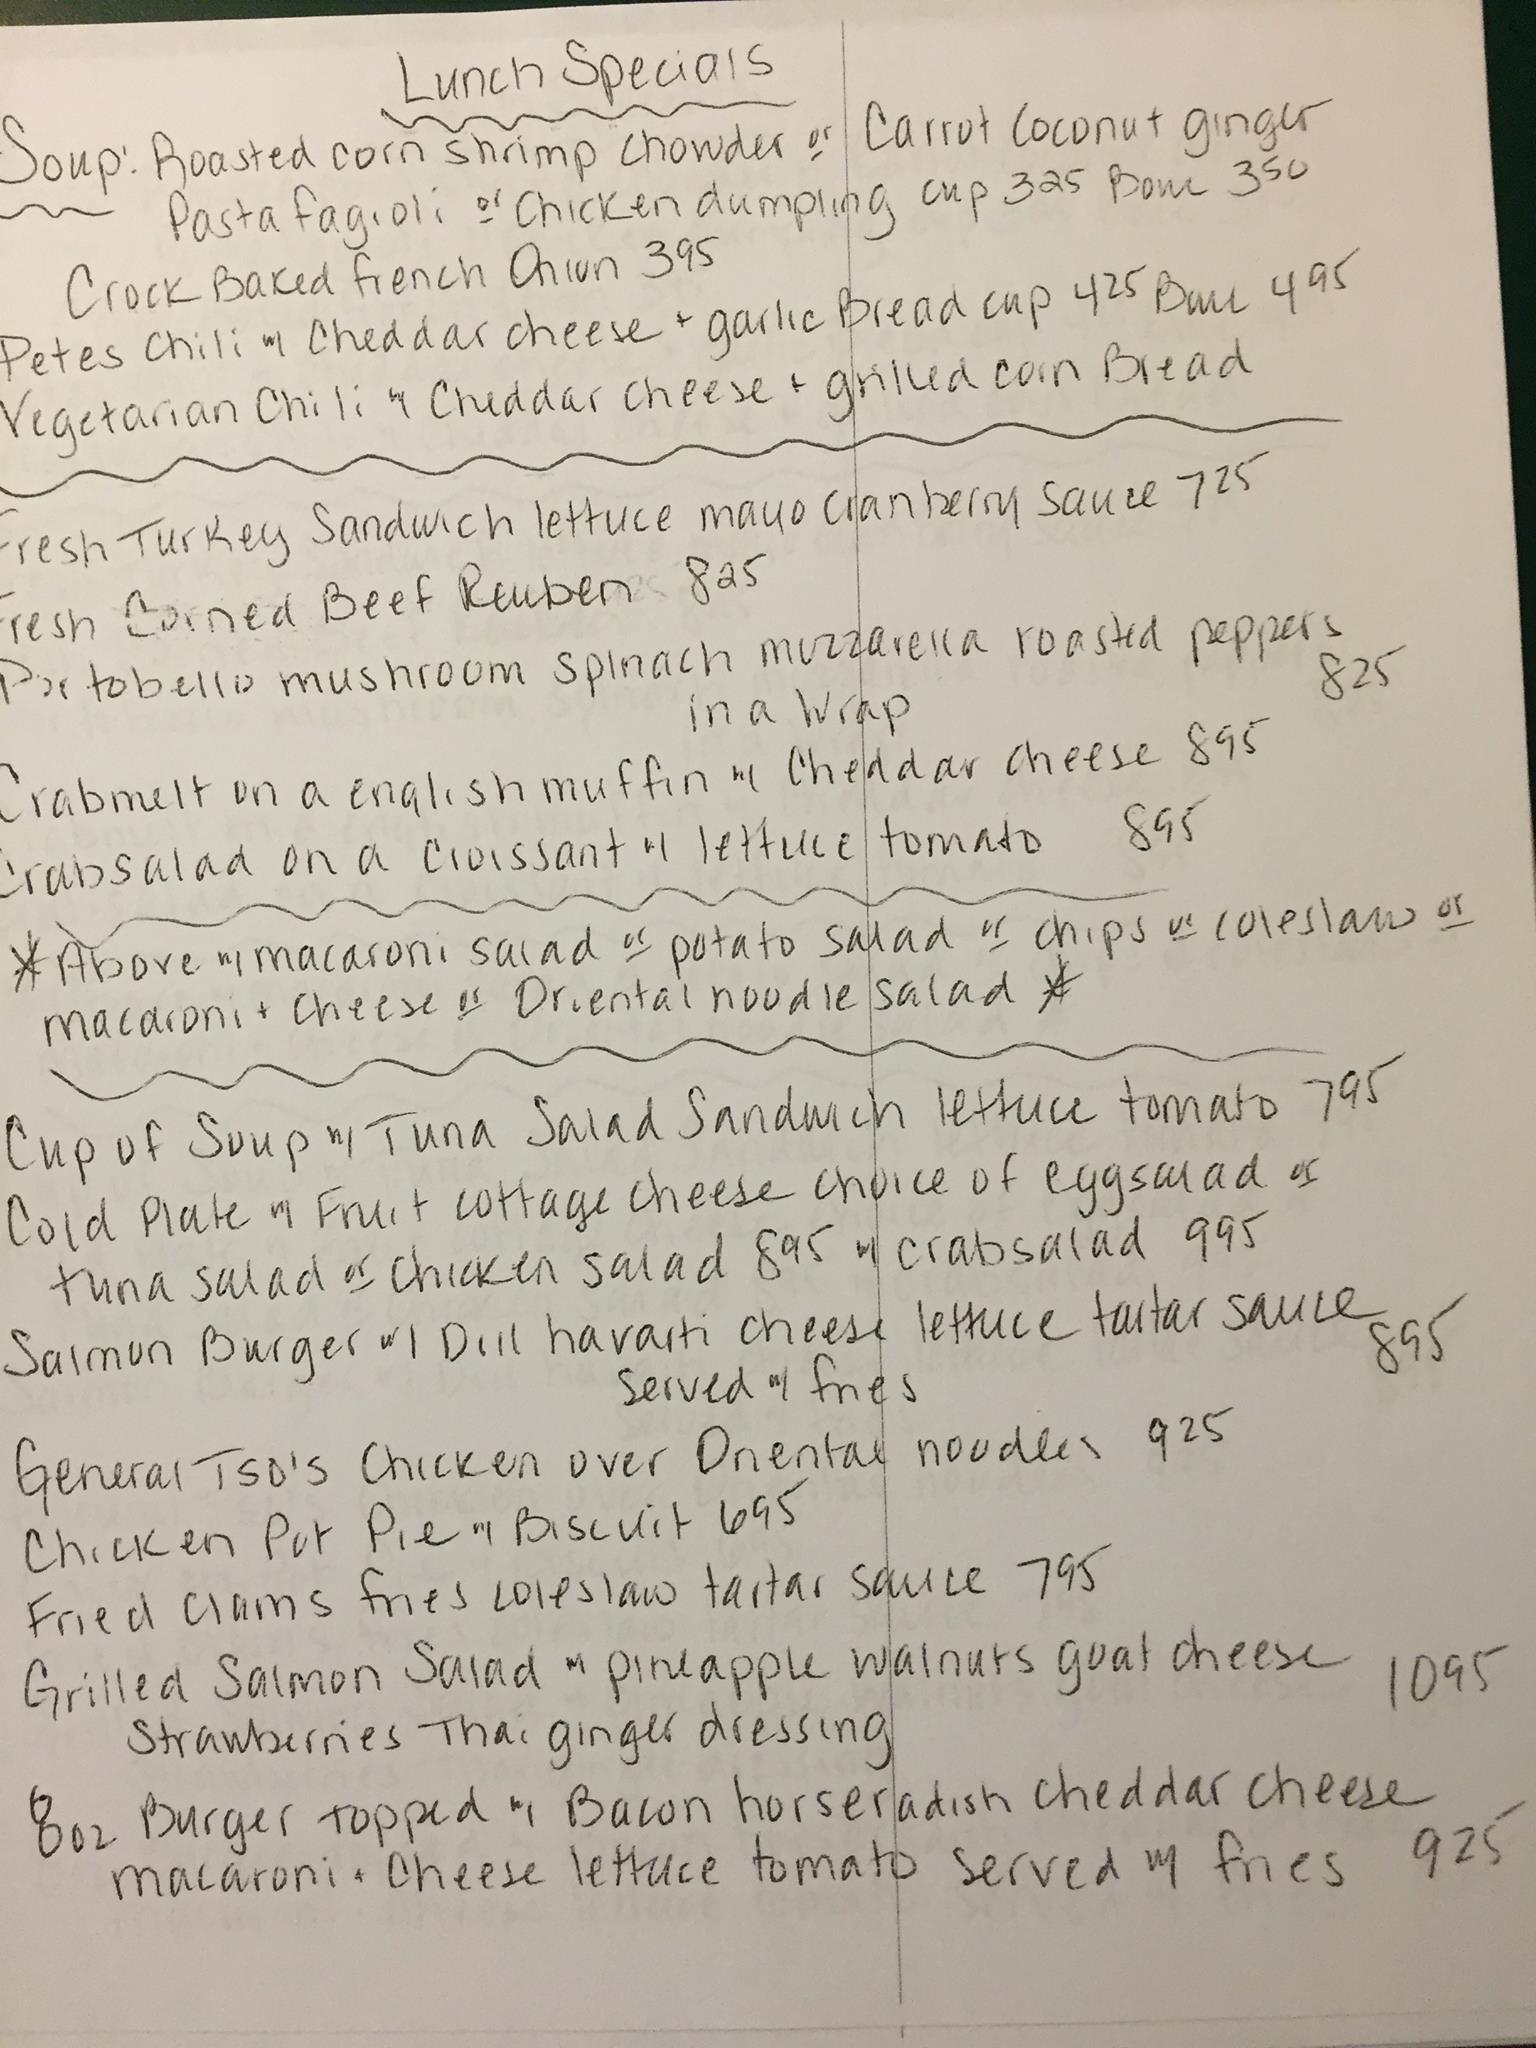 Lunch Specials
Soup: Roasted corn shrimp chowder or Carrot coconut ginger
Pasta fagioli or Chicken dumpling cup 325 Bowl 350
Crock Baked french Onion 395
Petes Chili w/ Cheddar cheese + garlic Bread cup 425 Bowl 495
Vegetarian Chili w/ Cheddar cheese + grilled corn Bread
Fresh Turkey Sandwich lettuce mayo cranberry sauce 725
Fresh Corned Beef Reuben 825
Portobello mushroom spinach muzzarella roasted peppers
825
in a Wrap
Crabmelt on a english muffin w/ Cheddar cheese 895
Crabsalad on a croissant w/ lettuce tomato 895
*Above w/ macaroni salad or potato salad or chips or coleslaw or
macaroni + cheese or Oriental noodle salad *
Cup of Soup w/ Tuna Salad Sandwich lettuce tomato 795
Cold Plate w/ Fruit cottage cheese choice of eggsalad or
tuna salad or chicken salad 895 w/ crabsalad 995
Salmon Burger w/ Dill havarti cheese lettuce tartar sauce
895
served w/ fries
General Tso's Chicken over Oriental noodles 925
Chicken Pot Pie w/ Biscuit 695
Fried Clams fries coleslaw tartar sauce 795
Grilled Salmon Salad w/ pineapple walnuts goat cheese 1095
Strawberries Thai ginger dressing
8oz Burger topped w/ Bacon horseradish cheddar cheese
macaroni + cheese lettuce tomato served w/ fries 925